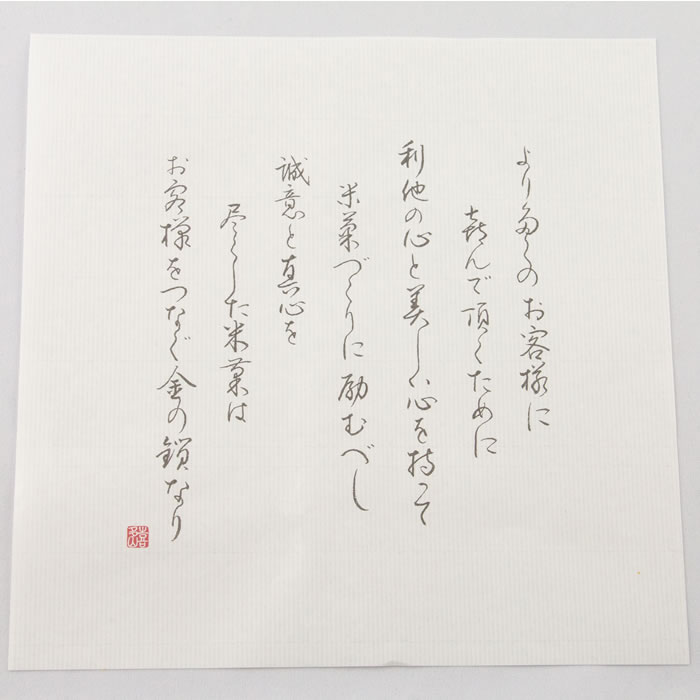 より多くのお客様に
喜んで頂くために
利他の心と美しい心を持って
米菓づくりに励むべし
誠意と真心を
尽くした米菓は
お客様をつなぐ金の鎖なり